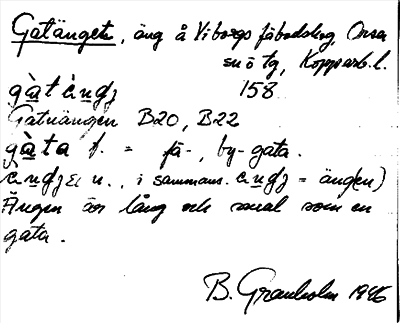 Gatängen, äng å Viborgs fäbodskog, Orsa
sn ö tg, Kopparb. l.
158
Gatuängen B20, B22
gàta f. = fä-, by-gata.
n., i sammans. = äng(en)
Ängen är lång och smal som en
gata.
B. Granholm 1946